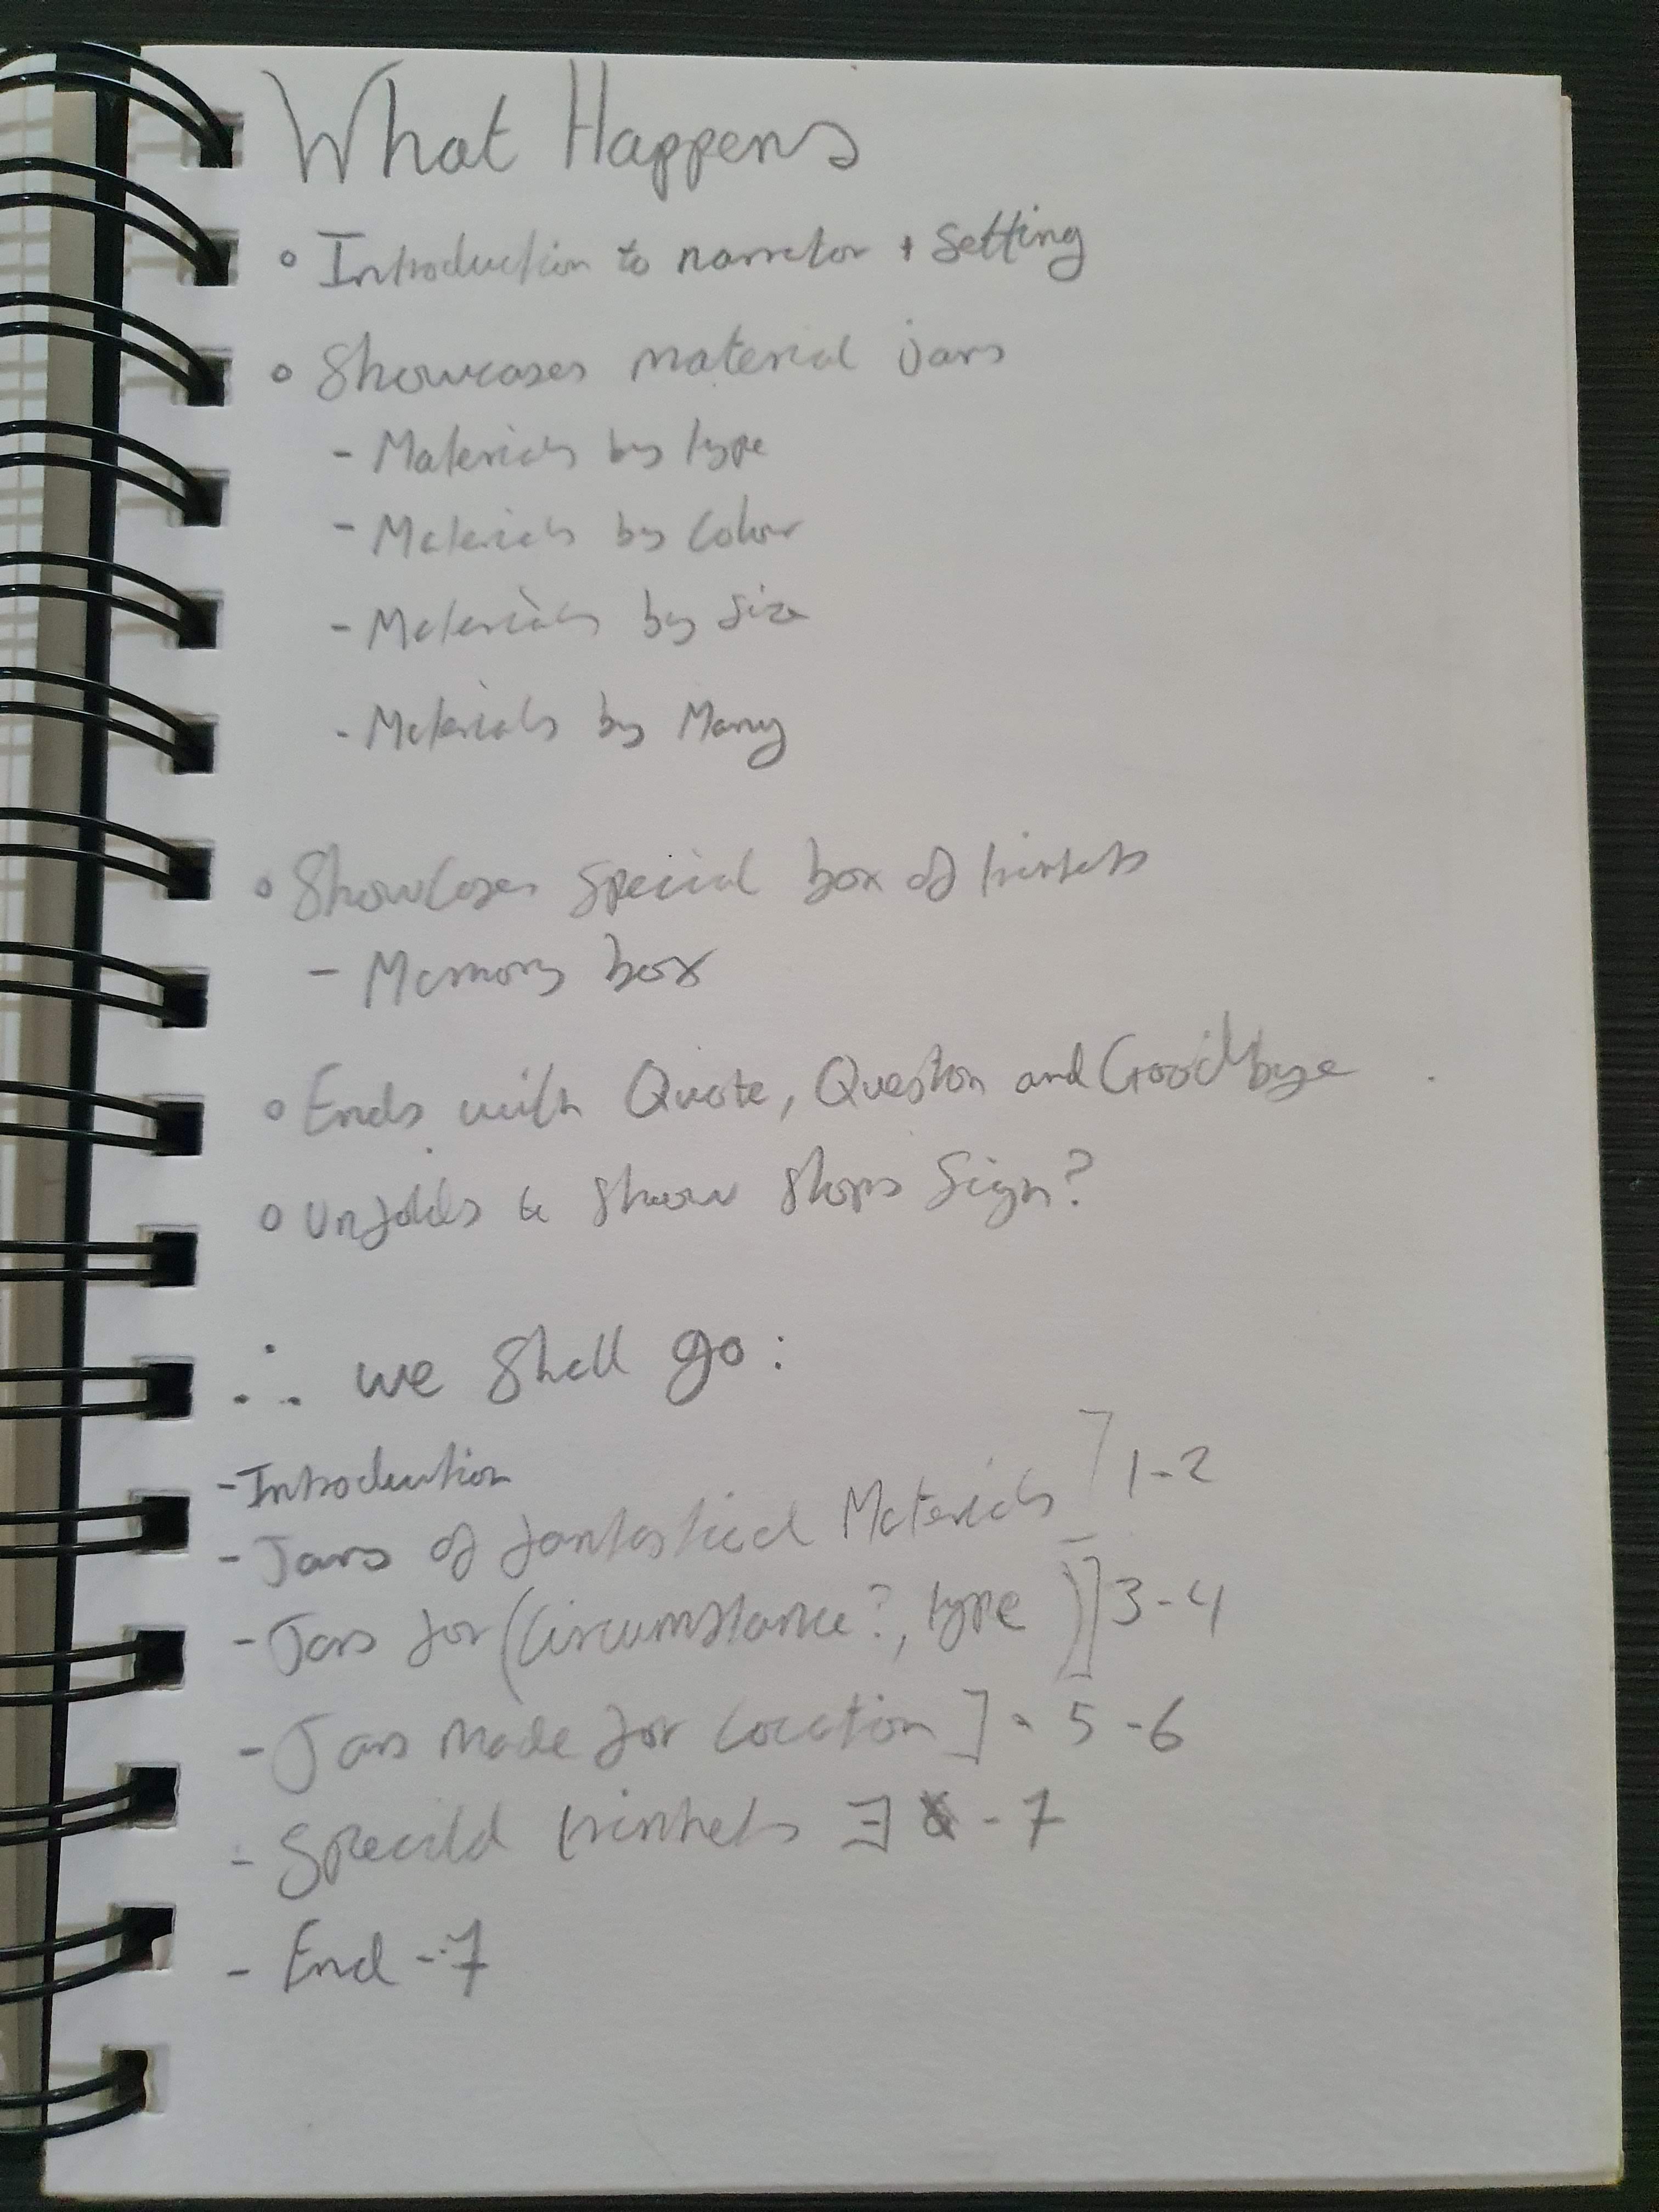 What Happens
◦ Introduction to narrator + Setting
◦ Showcases material jars
- Materials by type
- Materials by Colour
- Materials by Size
- Materials by Many
◦ Showcases Special box of trinkets
- Memory box
◦ Ends with Quote, Question and Goodbye
◦ Unfolds to show shops Sign?
∴ we shall go:
- Introduction
- Jars of fantastical Materials ] 1-2
- Jars for (Circumstance?, type )] 3-4
- Jars Made for Location ] - 5-6
- Speciald trinkets ] - 7
- End - 7